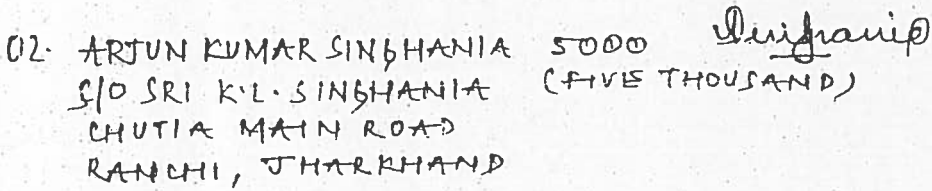 02. ARJUN KUMAR SINGHANIA 5000
S/O SRI K.L. SINGHANIA (FIVE THOUSAND)
CHUTIA MAIN ROAD
RANCHI, JHARKHAND